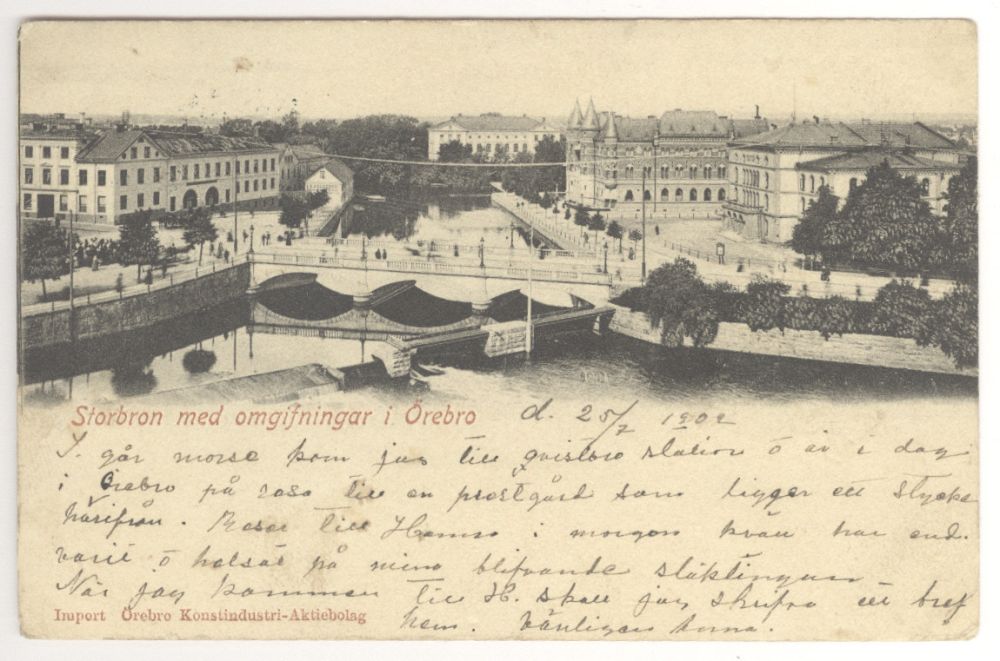 Storbron med omgifningar i Örebro
d. 25/7 1902
I går morse kom jag till Qvistbro station o är i dag
i Örebro på resa till en prostgård som ligger ett stycke
härifrån. Reser till i morgon kväll har end.
varit o helsat på mina blifvande släktingar
När jag kommer till H. skall jag skrifva ett bref
hem. Vänligen
Import Örebro Konstindustri-Aktiebolag